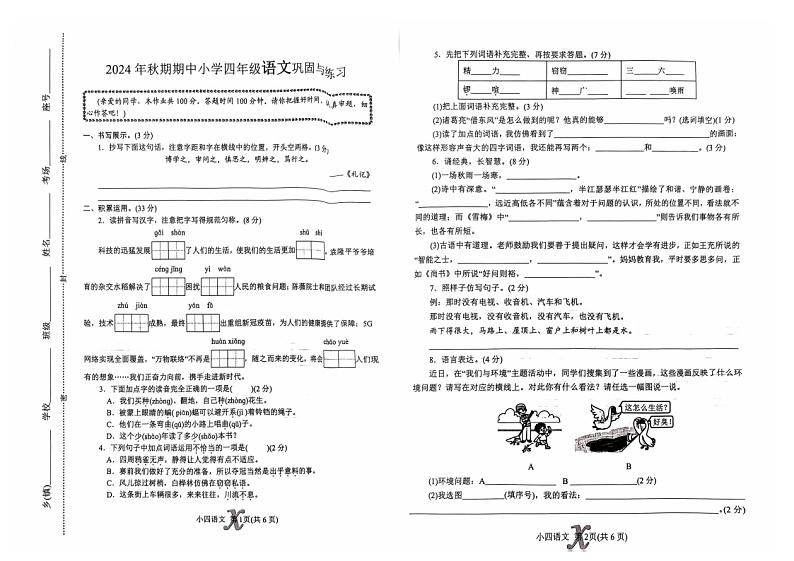 2024年秋期期中小学四年级语文巩固与练习
(亲爱的同学,本作业共100分。答题时间100分钟,请你把握好时间,认真审题,细
心作答吧!)
一、书写展示。(3分)
1. 抄写下面这句话,注意字距和字在横线中的位置,开头空两格。(3分)
博学之,审问之,慎思之,明辨之,笃行之。
——《礼记》
二、积累运用。(33分)
2. 读拼音写汉字,注意把字写得规范匀称。(8分)
gǎi shàn
shū shì
科技的迅猛发展 了人们的生活,使我们的生活更加 。袁隆平爷爷培
céng jīng yì wàn
育的杂交水稻解决了 困扰 人民的粮食问题;陈薇院士和团队经过长期试
zhú jiàn yán fā
验,技术 成熟,最终 出重组新冠疫苗,为人们的健康提供了保障;5G
huàn xiǎng chāo yuè
网络实现全面覆盖,“万物联络”不再是 ,随之而来的变化,将会 人们现
有的想象……我们正奋力向前,携手走进新时代。
3. 下面加点字的读音完全正确的一项是( )(2分)
A. 我们买种(zhǒng)、翻地,自己种(zhòng)花生。
B. 被蒙上眼睛的蝙(piān)蝠可以避开系(jì)着铃铛的绳子。
C. 他们在一条弯曲(qū)的小路上唱曲(qǔ)子。
D. 这个少(shào)年读了多少(shǎo)本书?
4. 下列句子中加点词语运用不恰当的一项是( )(2分)
A. 四周鸦雀无声,静得让人觉得有点不适应。
B. 赛前我们做好了充分的准备,所以夺冠当然是出乎意料的事。
C. 风儿掠过树梢,白桦林仿佛在窃窃私语。
D. 这条街上车辆很多,来来往往,川流不息。
小四语文 第1页(共6页)
座号
考场
姓名
班级
学校
乡(镇)
线
封
密
5. 先把下列词语补充完整,再按要求答题。(7分)
精 力 窃窃 三 六
锣 喧 神 广 唤雨
(1)把上面词语补充完整。(3分)
(2)诸葛亮“借东风”是怎么做到的呢?他真的能够 吗?(选词填空)(1分)
(3)读了加点的词语,我仿佛看到了 的画面;
像这样形容声音大的四字词语,我还能再写两个: 和 。(3分)
6. 诵经典,长智慧。(8分)
(1)一场秋雨一场寒, 。
(2)诗中有深意。“ ,半江瑟瑟半江红”描绘了和谐、宁静的画卷;
“ ,远近高低各不同”蕴含着对于问题的认识,所处的位置不同,看法就不
同的道理;而《雪梅》中“ , ”则告诉我们事物各有所
长,也各有所短。
(3)古语中有道理。老师鼓励我们要善于提出疑问,这样才会学有进步,正如王充所说的
“智能之士, , ”。妈妈教育我,平时要多思多问,正
如《尚书》中所说“好问则裕, ”。
7. 照样子仿写句子。(2分)
例:那时没有电视、收音机、汽车和飞机。
那时没有电视,没有收音机,没有汽车,也没有飞机。
雨下得很大,马路上、屋顶上、窗户上和树叶上都是水。
8. 语言表达。(4分)
近日,在“我们与环境”主题活动中,同学们搜集到了一些漫画,这些漫画反映了什么环
境问题?请写在对应的横线上。对此你有什么看法?请任选一幅图说一说。
这怎么生活?
好臭!
A B
(1)环境问题:A B (2分)
(2)我选图 (填序号),我的看法:
。(2分)
小四语文 第2页(共6页)